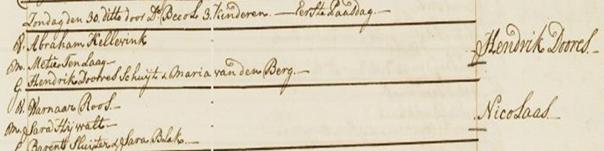 Zondag den 30, ditto door Ds. Beeols 3. Kinderen. — Eerste Paasdag.
V. Abraham Kellerink
M. Metie Ten Laag.
G. Hendrik Doores Schuyt & Maria van den Berg.
Hendrik Doores.
V. Warnaar Roos.
M. Sara Hywatt.
Nicolaas.
G. Barent Sluijter & Sara Blak.